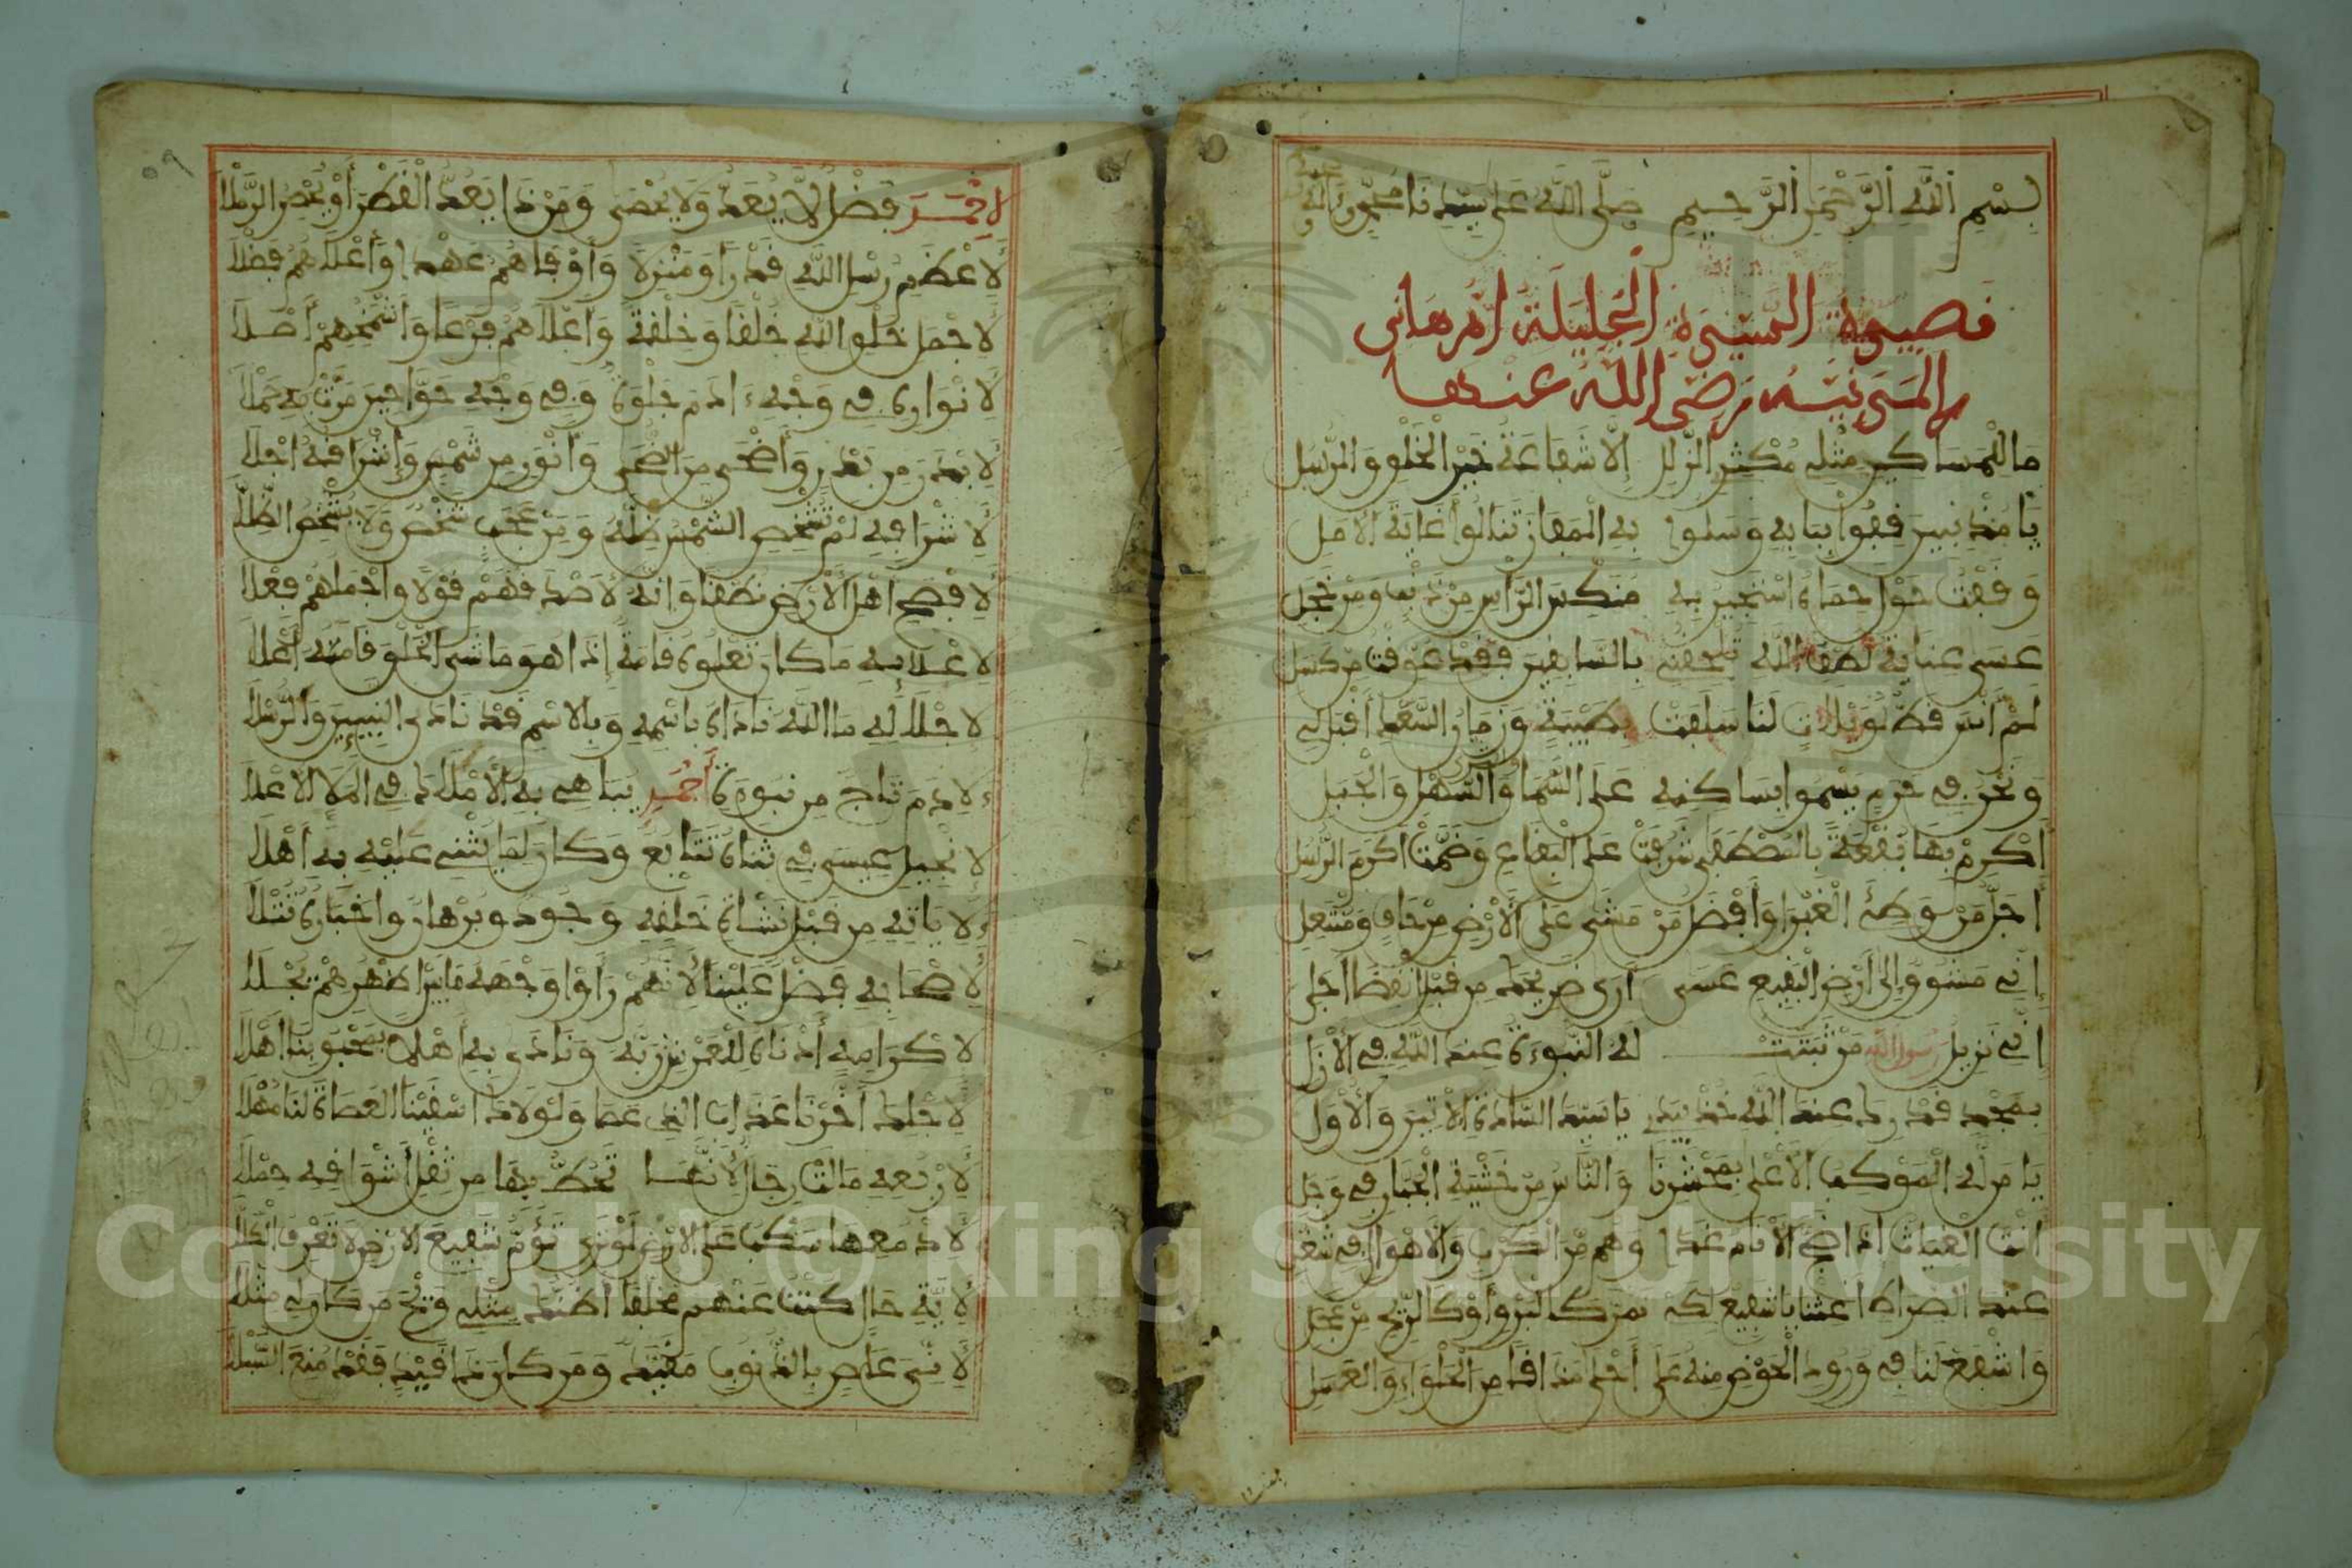 بِسْمِ اللَّهِ الرَّحْمَٰنِ الرَّحِيمِ صَلَّى اللَّهُ عَلَى سَيِّدِنَا مُحَمَّدٍ وَآلِهِ
قصيدة السيدة الجليلة أم هاني
المدنية رضي الله عنها
ما للمساكين مثلي مكثر الزلل إلا شفاعة خير الخلق والرسل
يا مذنبين قفوا ببابه وسلوا به المفاز تنالوا غاية الأمل
وقفت حول حماه أستجير به منكس الرأس من ذنب ومن خجل
عسى عناية لطف الله تلحقني بالسابقين فقد عوقت من كسل
لم أنس قط لويلات لنا سلفت بطيبة وزمان السعد أقبل لي
ونحن في حرم يسموا بساكنه على السما والسهل والجبل
أكرم بها بقعة بالمصطفى شرفت على البقاع وضمت أكرم الرسل
أجل من وطئ الغبرا وأفضل من مشى على الأرض من حاف ومنتعل
إني مشوق إلى أرض البقيع عسى أرى ضريحه من قبل انقضا أجلي
إني نزيل رسول الله من ثبتت له النبوءة عند الله في الأزل
يا سيد السادة الآتين والأول
يا من له الموكب الأعلى بمحشرنا والناس من خشية الجبار في وجل
أنت الغياث إذا ضج الأنام غدا وهم من الكرب والأهوال في شغل
عند الصراط أغثنا يا شفيع لكي نمر كالبرق أو كالريح من عجل
واشفع لنا في ورود الحوض منه على أحلى مذاقا من الحلواء والعسل
لأحمد فضل لا يعد ولا يحصى ومن ذا يعد القطر أو يحصر الرملا
لأعظم رسل الله قدرا ومنزلا وأوفاهم عهدا وأعلاهم فضلا
لأجمل خلق الله خلقا وخلقة وأعلاهم فرعا وأشمخهم أصلا
لأنواره في وجه ءادم جلوة وفي وجه حوا حين مرت به حملا
لأبدر من بدر وأضحى من الضحى وأنور من شمس وإشراقه أجلا
لإشراقه لم تشخص الشمس ظله ومن عجب شخص ولا يشخص الظلا
لأفصح أهل الأرض نطقا وإنه لأصدقهم قولا وأجملهم فعلا
لإعلائه ما كان تعلوه قامة إذا هو ماشى الخلق قامته أعلا
لإجلاله ما الله ناداه باسمه وبالاسم قد نادى النبيين والرسلا
ءلادم تاج من نبوءة أحمد يباهي به الأملاك في الملا الأعلا
لإنجيل عيسى في ثناه تتابع وكان لما يثني عليه به أهلا
ءلاياته من قبل نشأة خلقه وجود وبرهان وأخباره تتلا
لأصحابه فضل علينا لأنهم رأوا وجهه ما بين أظهرهم يجلا
لإكرامه أدناه للعرش ربه ونادى به أهلا بمحبوبنا أهلا
لأجله أخرنا عذاب الذي عصا ولولاه أسقينا العصاة لنا مهلا
لأربعه مالت رجال لأنها تحط بها من ثقل أشواقه حملا
لأدمعها سكب على الأرض لو ترى تؤم شفيع الأرض لا تعرف الكلا
لأية حال كنت عنهم مخلفا أظنك مثلي ويح من كان لي مثلا
لأني عاص بالذنوب مقيد ومن كان ذا قيد فقد منع السبلا